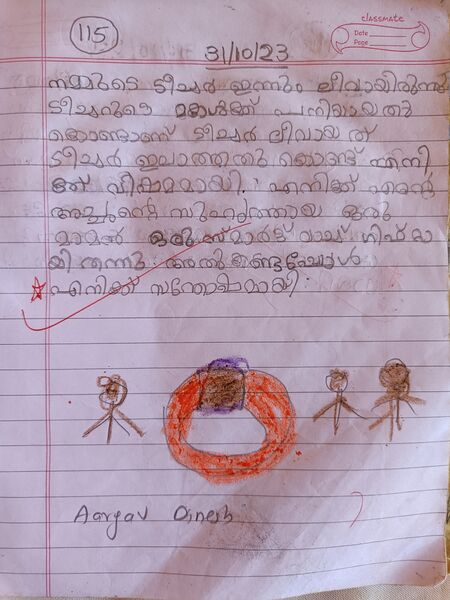 classmate
Date
Page
115
31/10/23
നമ്മുടെ ടീച്ചർ ഇന്നും ലീവായിരുന്നു
ടീച്ചറുടെ മോൾക്ക് പനിയായതു
കൊണ്ടാണ് ടീച്ചർ ലീവായത്
ടീച്ചർ ഇല്ലാത്തതു കൊണ്ട് എനി
ക്ക് വിഷമമായി. എനിക്ക് എന്റെ
അച്ഛന്റെ സുഹൃത്തായ ഒരു
മാമൻ ഒരു സ്മാർട്ട് വാച്ച് ഗിഫ്റ്റാ
യി തന്നു അത് കണ്ടപ്പോൾ
എനിക്ക് സന്തോഷമായി
Aargav Dinesh